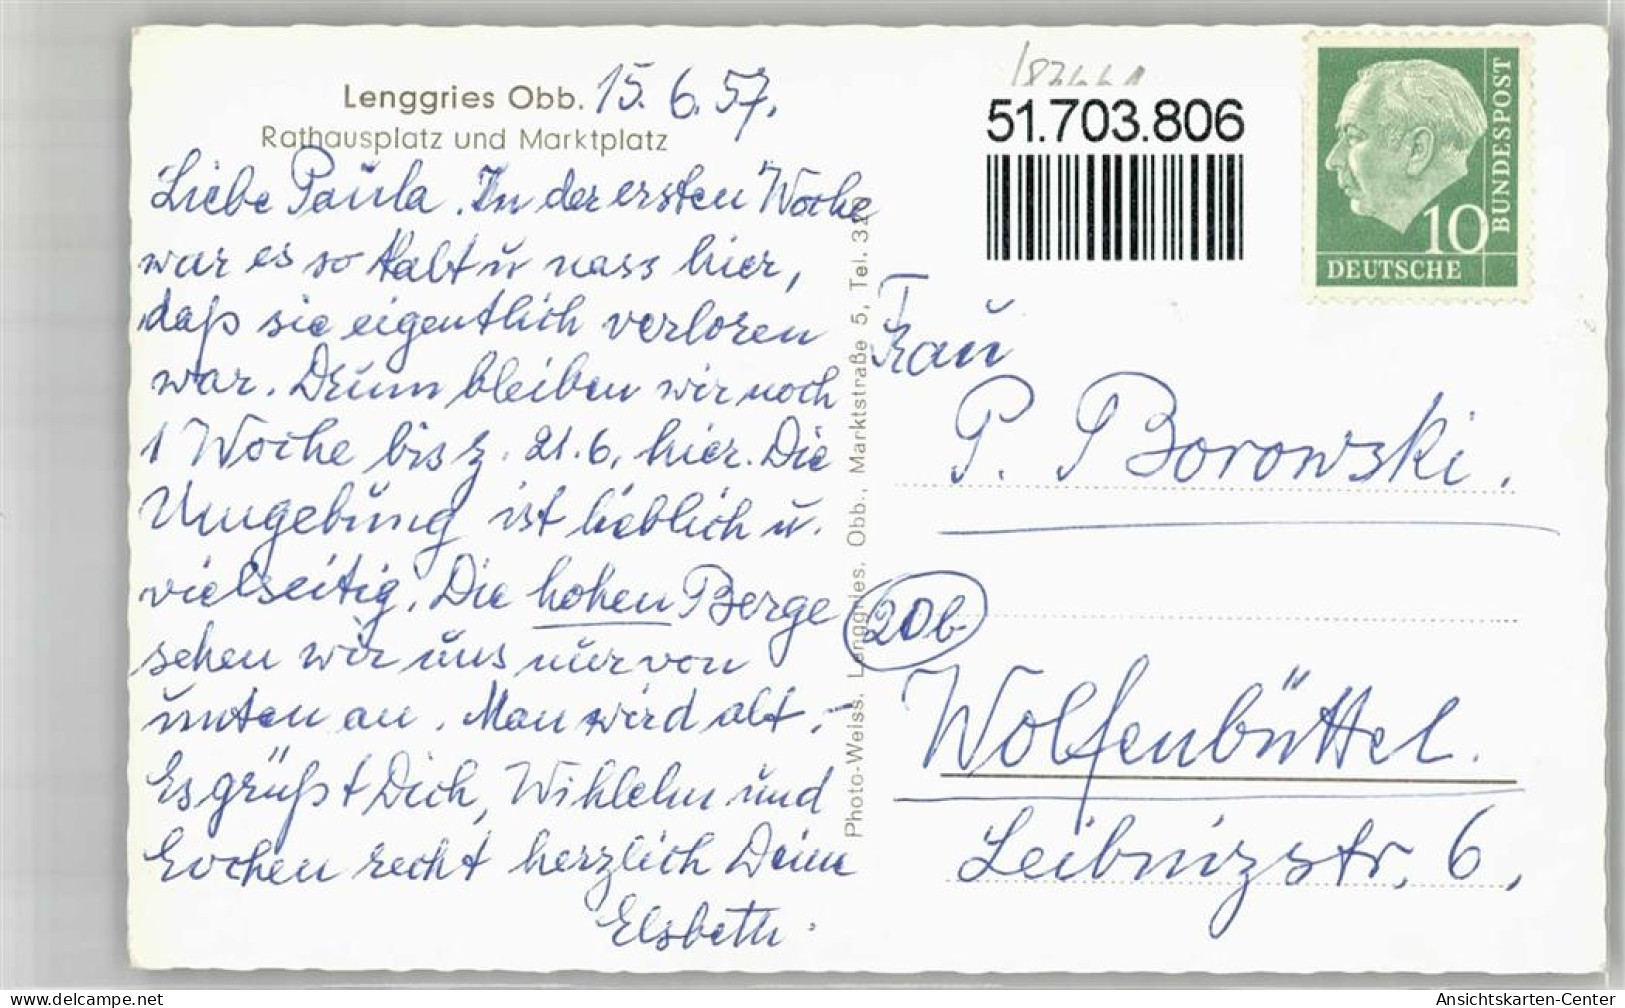 Lenggries Obb. 15. 6. 57.
Rathausplatz und Marktplatz
Liebe Paula. In der ersten Woche
war es so kalt u nass hier,
daß sie eigentlich verloren
war. Drum bleiben wir noch
1 Woche bis z. 21.6. hier. Die
Umgebung ist lieblich u.
vielseitig. Die hohen Berge
sehen wir uns nur von
unten an. Man wird alt.-
Es grüßt Dich, Wihlelm und
recht herzlich Deine
Elsbeth.
Photo-Weiss, Lenggries, Obb., Marktstraße 5, Tel. 32
51.703.806
10
DEUTSCHE
BUNDESPOST
Frau
P. Borowski.
20b
Wolfenbüttel.
Leibnizstr. 6,
www.delcampe.net
Ansichtskarten-Center